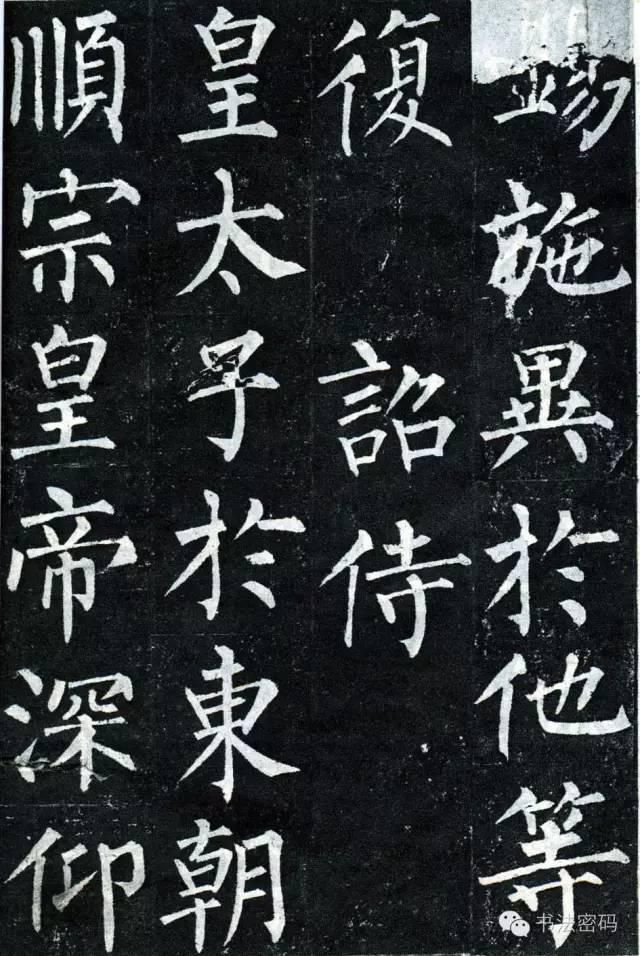 錫施異於他等
復 詔侍
皇太子於東朝
順宗皇帝深仰
书法密码